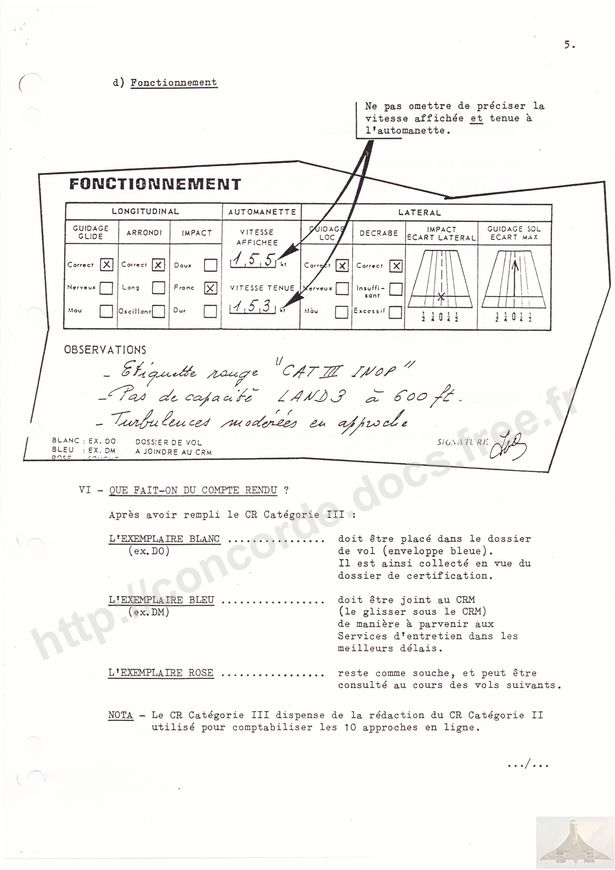 5.
d) Fonctionnement
Ne pas omettre de préciser la
vitesse affichée et tenue à
l'automanette.
FONCTIONNEMENT
LONGITUDINAL AUTOMANETTE LATERAL
GUIDAGE GLIDE ARRONDI IMPACT VITESSE AFFICHEE GUIDAGE LOC DECRABE IMPACT ECART LATERAL GUIDAGE SOL ECART MAX
Correct X Correct X Doux 1,5,5 kt Correct X Correct X
Nerveux Long Franc X VITESSE TENUE Nerveux Insuffi-sant
Mou Oscillant Dur 1,5,3 kt Mou Excessif ½ ¼ 0 ¼ ½ ½ ¼ 0 ¼ ½
OBSERVATIONS
- Etiquette rouge "CAT III INOP"
- Pas de capacité LAND3 à 600 ft.
- Turbulences modérées en approche
BLANC : EX. DO DOSSIER DE VOL SIGNATURE
BLEU : EX. DM A JOINDRE AU CRM
VI - QUE FAIT-ON DU COMPTE RENDU ?
Après avoir rempli le CR Catégorie III :
L'EXEMPLAIRE BLANC ................ doit être placé dans le dossier
(ex.DO) de vol (enveloppe bleue).
Il est ainsi collecté en vue du
dossier de certification.
L'EXEMPLAIRE BLEU ................. doit être joint au CRM
(ex.DM) (le glisser sous le CRM)
de manière à parvenir aux
Services d'entretien dans les
meilleurs délais.
L'EXEMPLAIRE ROSE ................. reste comme souche, et peut être
consulté au cours des vols suivants.
NOTA - Le CR Catégorie III dispense de la rédaction du CR Catégorie II
utilisé pour comptabiliser les 10 approches en ligne.
.../...
http://concorde.docs.free.fr